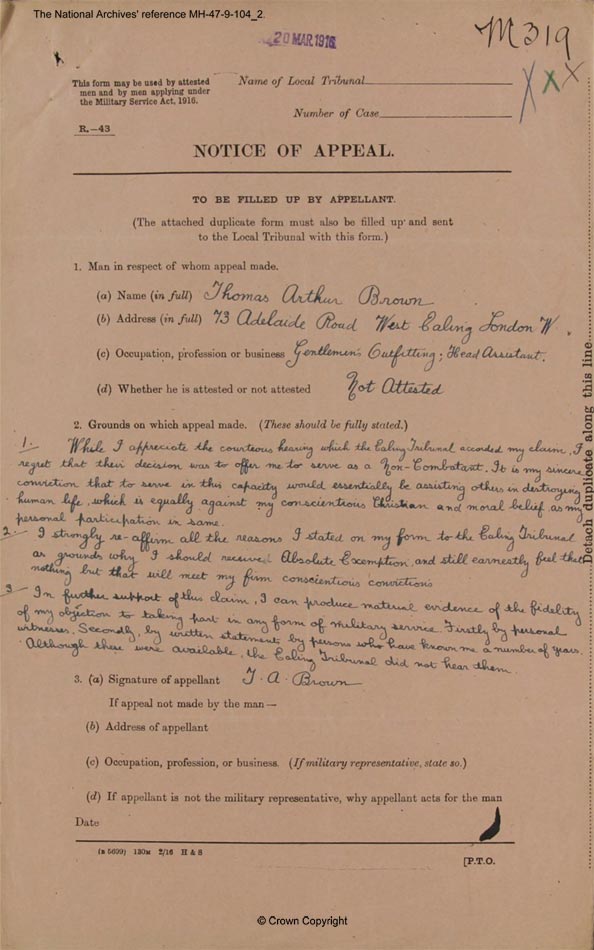 The National Archives' reference MH-47-9-104_2
20 MAR 1916
M319
This form may be used by attested
men and by men applying under
the Military Service Act, 1916.
Name of Local Tribunal
Number of Case
R.—43
NOTICE OF APPEAL.
TO BE FILLED UP BY APPELLANT.
(The attached duplicate form must also be filled up and sent
to the Local Tribunal with this form.)
1. Man in respect of whom appeal made.
(a) Name (in full) Thomas Arthur Brown
(b) Address (in full) 73 Adelaide Road West Ealing London W.
(c) Occupation, profession or business Gentlemen's Outfitting; Head Assistant.
(d) Whether he is attested or not attested Not Attested
2. Grounds on which appeal made. (These should be fully stated.)
1. While I appreciate the courteous hearing which the Ealing Tribunal accorded my claim, I
regret that their decision was to offer me to serve as a Non-Combatant. It is my sincere
conviction that to serve in this capacity would essentially be assisting others in destroying
human life, which is equally against my conscientious Christian and moral belief as my
personal participation in same.
2. I strongly re-affirm all the reasons I stated on my form to the Ealing Tribunal
as grounds why I should received Absolute Exemption, and still earnestly feel that
nothing but that will meet my firm conscientious convictions
3 In further support of this claim, I can produce material evidence of the fidelity
of my objection to taking part in any form of military service. Firstly by personal
witnesses. Secondly, by written statement by persons who have known me a number of years.
Although these were available, the Ealing Tribunal did not hear them.
3. (a) Signature of appellant T. A. Brown
If appeal not made by the man—
(b) Address of appellant
(c) Occupation, profession, or business. (If military representative, state so.)
(d) If appellant is not the military representative, why appellant acts for the man
Date
(B 5699) 130M 2/16 H & S
[P.T.O.
Detach duplicate along this line
© Crown Copyright